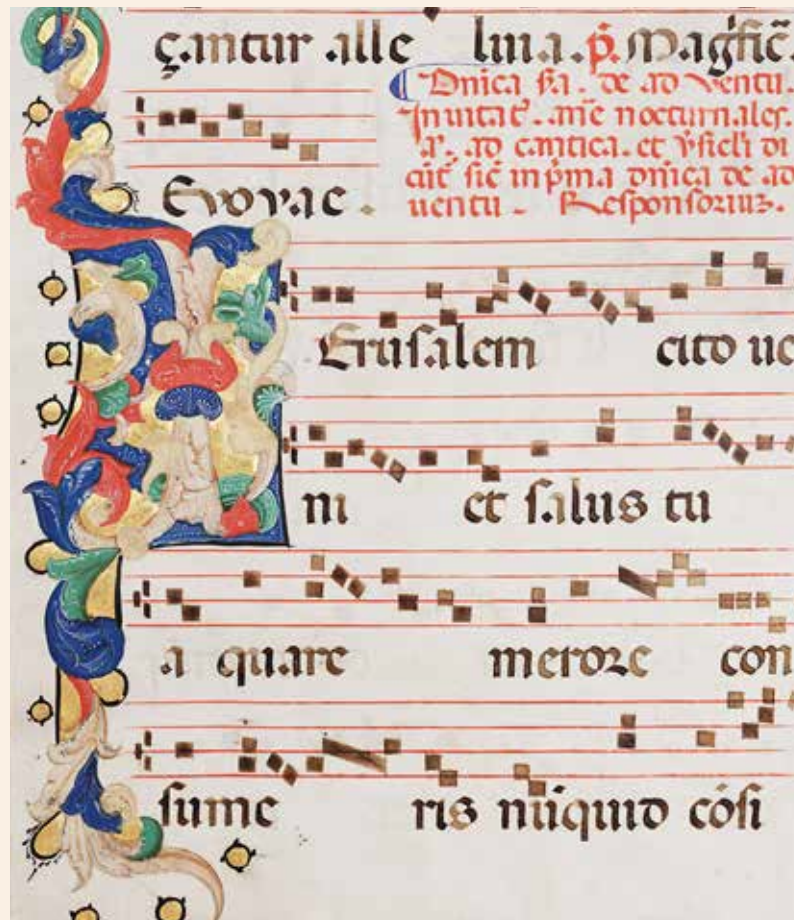 çantur alle luia. p̃. Magr̃fic̃.
Dnica s̃a. de ad ventu.
Inuitat̃. ãne nocturnales.
a. ad cantica. et v̾sicl̾i di
cũt sic̃ in p̾ma dnica de ad
uentu. Responsorius.
Evovae.
Erusalem cito ue
ni et salus tu
a quare merore con
sume ris nũquid cõsi